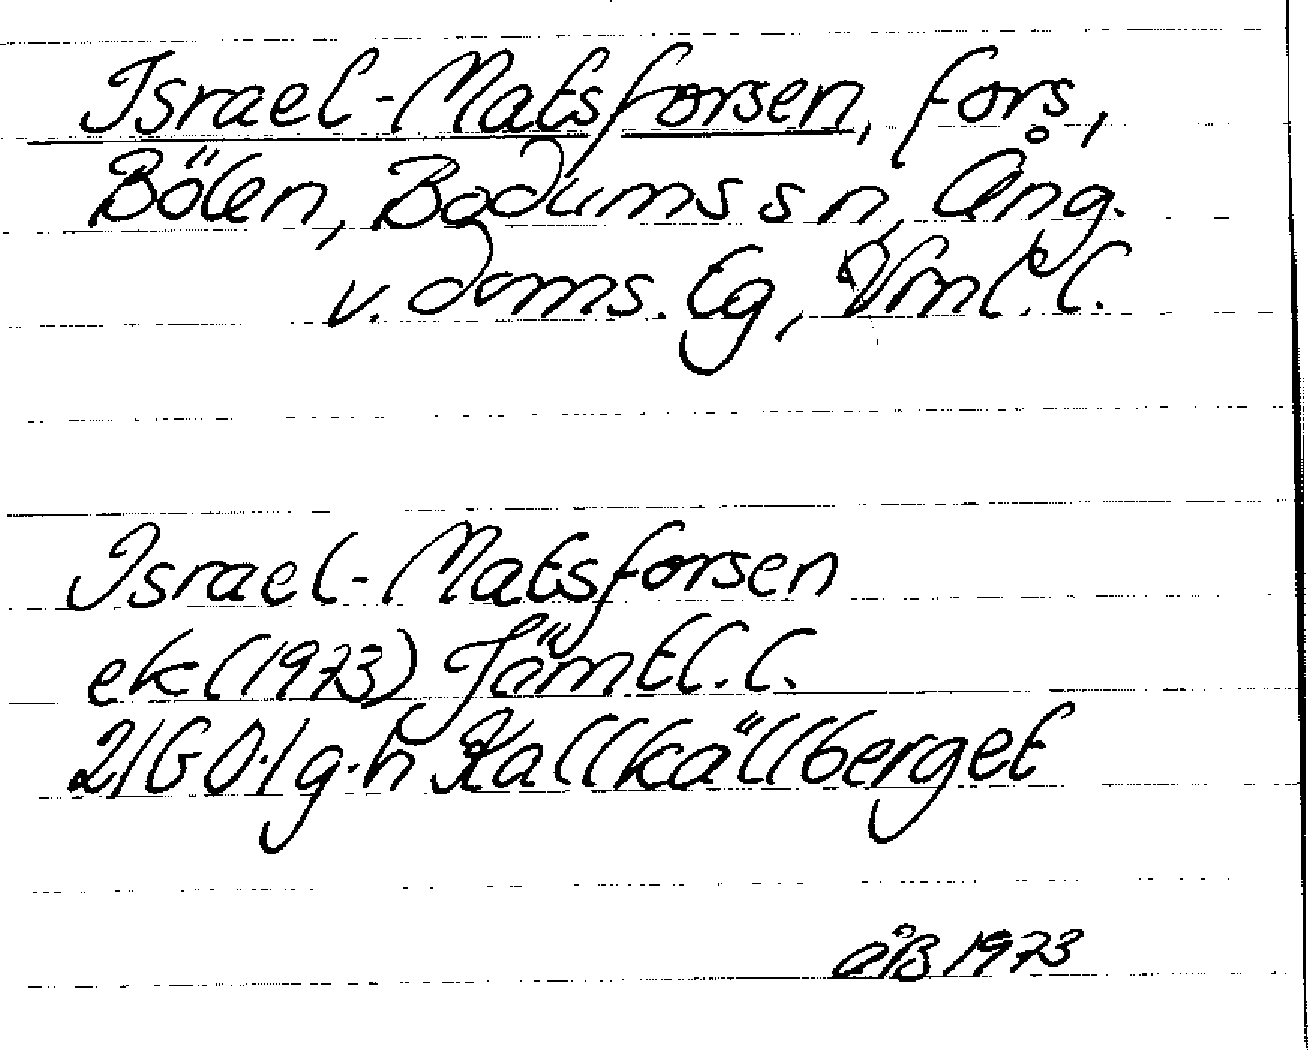 Israel-Matsforsen, fors,
Bölen, Bodums sn, Ång.
v. doms. Eg, Vrnl. l.
Israel-Matsforsen
ek (1973) Jämtl. l.
21G 0-1g-h Kallkällberget
ÅB 1973